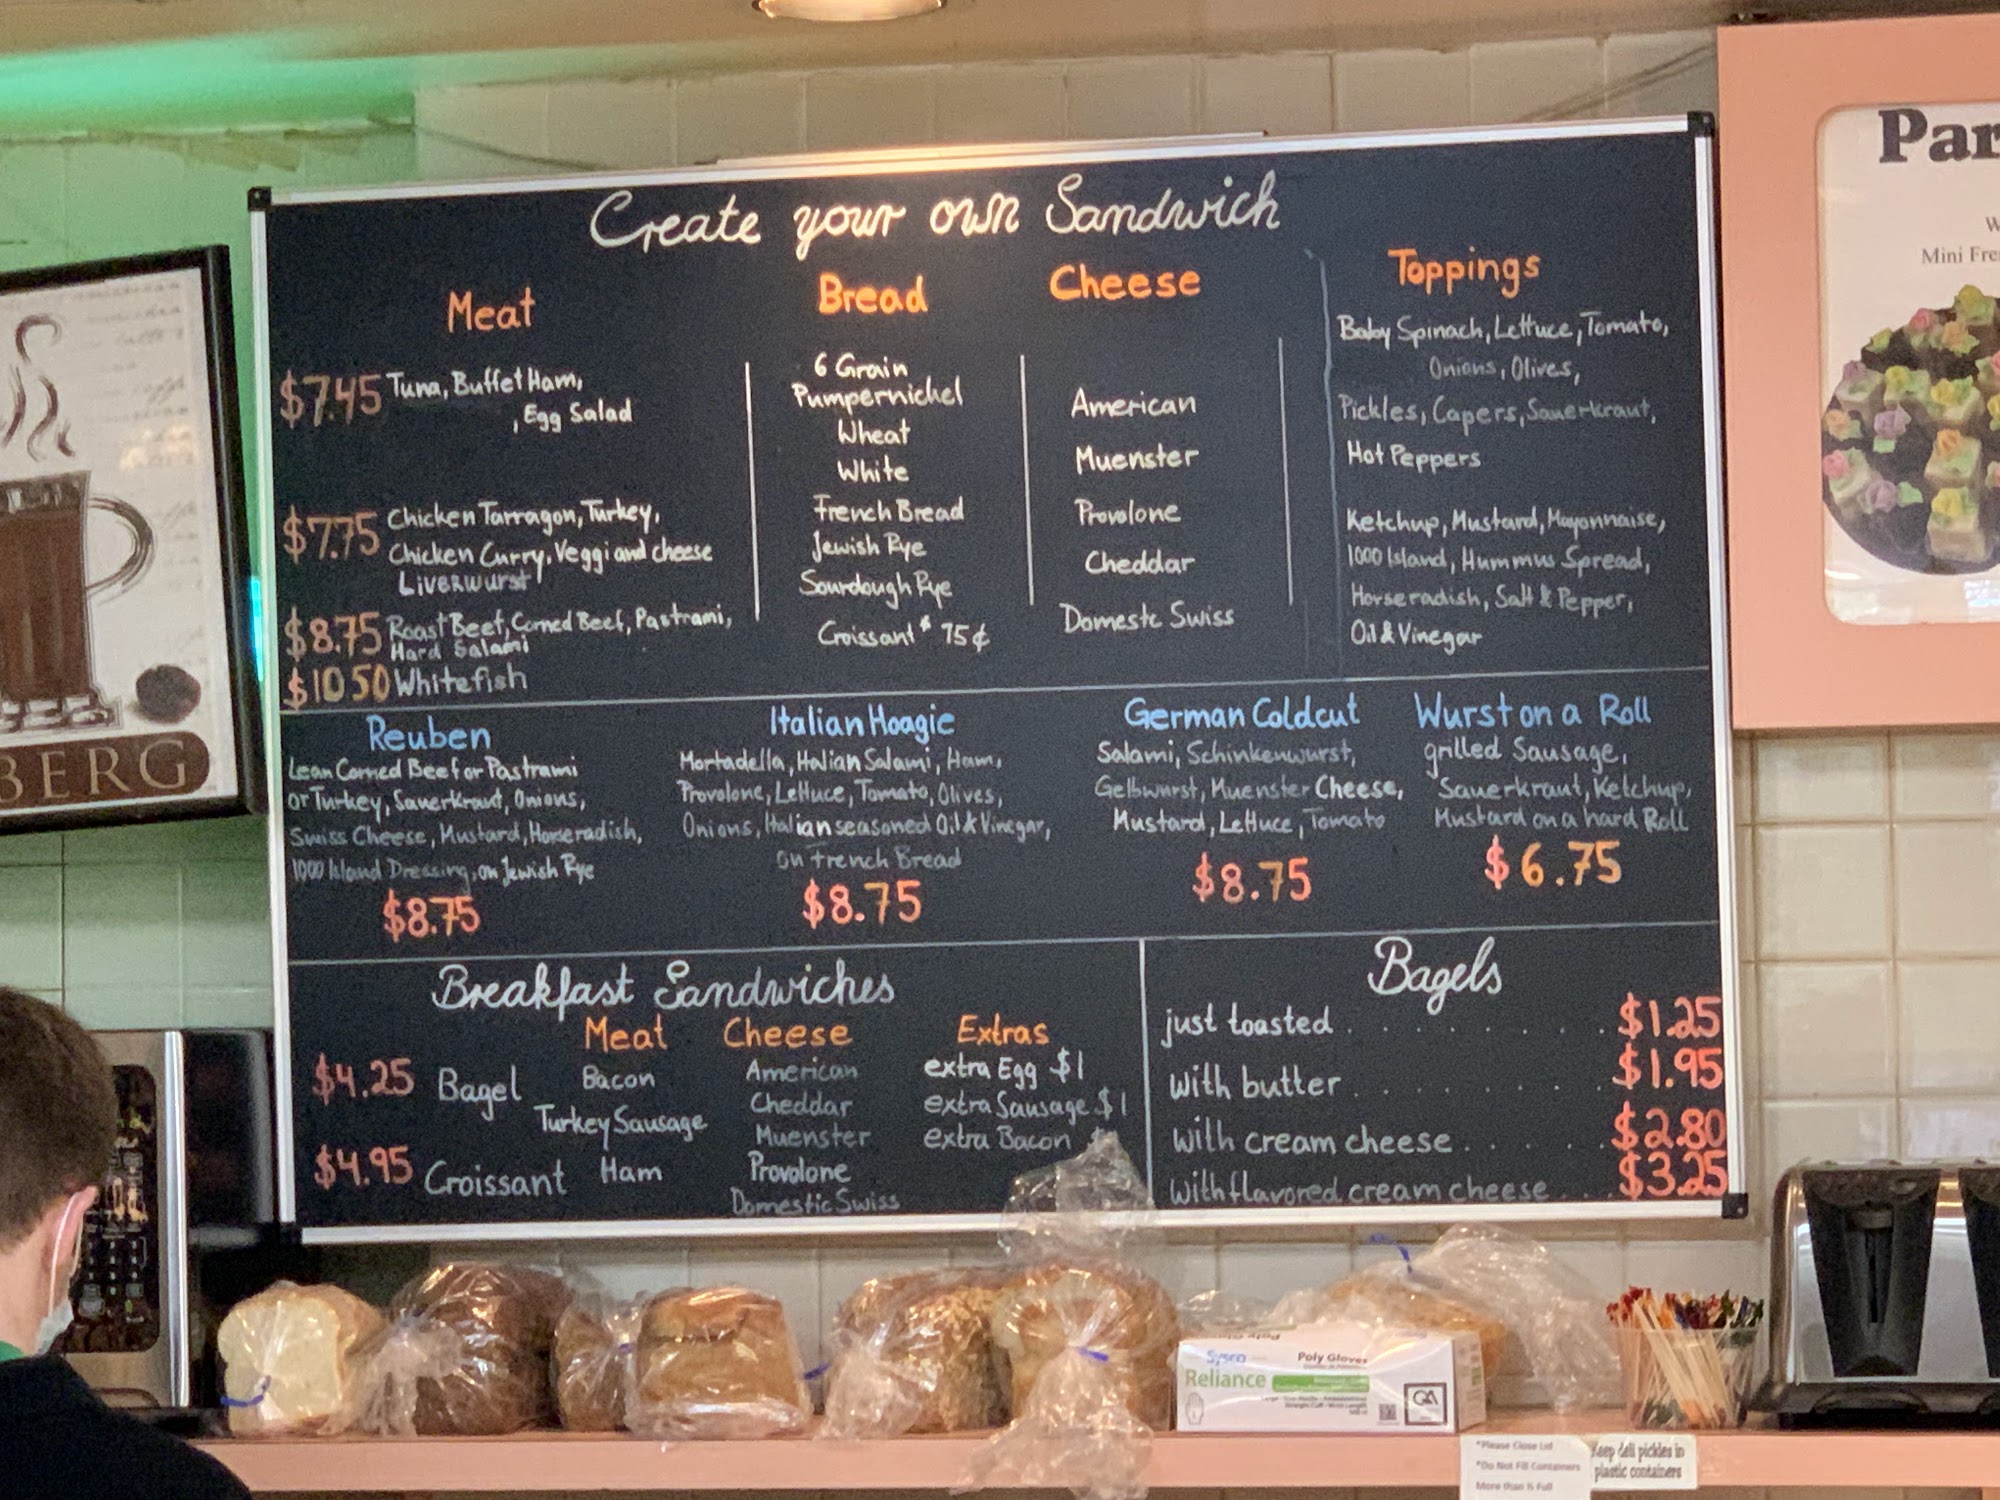 Create your own Sandwich
Meat
$7.45 Tuna, Buffet Ham,
, Egg Salad
$7.75 Chicken Tarragon, Turkey,
Chicken Curry, Veggi and cheese
Liverwurst
$8.75 Roast Beef, Corned Beef, Pastrami,
Hard Salami
$10 50 Whitefish
Bread
6 Grain
Pumpernickel
Wheat
White
French Bread
Jewish Rye
Sourdough Rye
Croissant $ 75¢
Cheese
American
Muenster
Provolone
Cheddar
Domestc Swiss
Toppings
Baby Spinach, Lettuce, Tomato,
Onions, Olives,
Pickles, Capers, Sauerkraut,
Hot Peppers
Ketchup, Mustard, Mayonnaise,
1000 Island, Hummus Spread,
Horseradish, Salt & Pepper,
Oil & Vinegar
Reuben
Lean Corned Beef or Pastrami
or Turkey, Sauerkraut, Onions,
Swiss Cheese, Mustard, Horseradish,
1000 Island Dressing, on Jewish Rye
$8.75
Italian Hoagie
Mortadella, Italian Salami, Ham,
Provolone, Lettuce, Tomato, Olives,
Onions, Italian seasoned Oil & Vinegar,
on French Bread
$8.75
German Coldcut
Salami, Schinkenwurst,
Gelbwurst, Muenster Cheese,
Mustard, Lettuce, Tomato
$8.75
Wurst on a Roll
grilled Sausage,
Sauerkraut, Ketchup,
Mustard on a hard Roll
$6.75
Breakfast Sandwiches
$4.25 Bagel
$4.95 Croissant
Meat
Bacon
Turkey Sausage
Ham
Cheese
American
Cheddar
Muenster
Provolone
Domestic Swiss
Extras
extra Egg $1
extra Sausage $1
extra Bacon
Bagels
just toasted . . . . . . . . $1.25
with butter . . . . . . . . $1.95
with cream cheese . . . . . $2.80
with flavored cream cheese . . . $3.25
BERG
Par
W
Mini Fre
Sysco
Reliance
Poly Gloves
*Please Close Lid
*Do Not Fill Containers
More than ½ Full
Keep deli pickles in
plastic containers